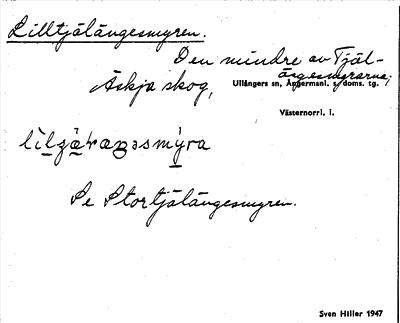 Lilltjälängesmyren.
Den mindre av Tjäl-
ängesmyrarna,
Äskja skog, Ullångers sn, Ångermanl. s. doms. tg.
Västernorrl. l.
Se Stortjälängesmyren.
Sven Hiller 1947